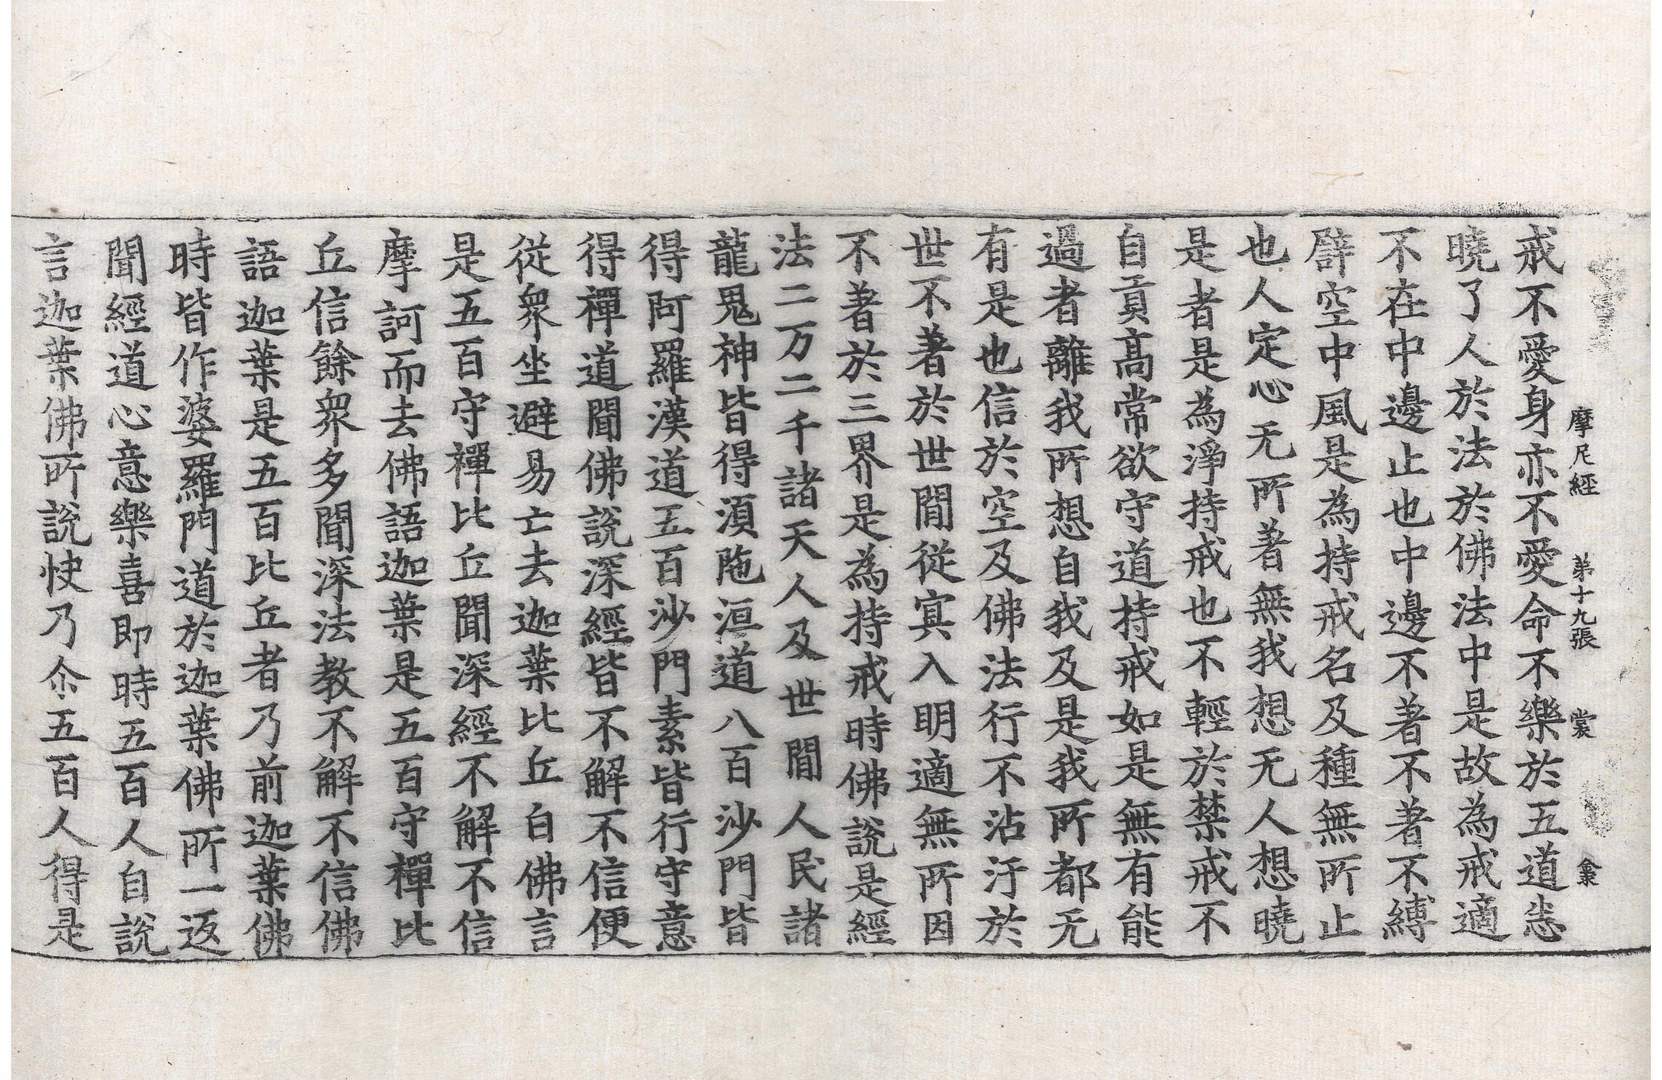 摩尼經 第十九張 裳
戒不愛身亦不愛命不樂於五道悉
曉了人於法於佛法中是故為戒適
不在中邊止也中邊不著不著不縛
辟空中風是為持戒名及種無所止
也人定心无所著無我想无人想曉
是者是為淨持戒也不輕於禁戒不
自貢高常欲守道持戒如是無有能
過者離我所想自我及是我所都无
有是也信於空及佛法行不沾汙於
世不著於世間從冥入明適無所因
不著於三界是為持戒時佛說是經
法二万二千諸天人及世間人民諸
龍鬼神皆得須陁洹道八百沙門皆
得阿羅漢道五百沙門素皆行守意
得禪道聞佛說深經皆不解不信便
從衆坐避易亡去迦葉比丘白佛言
是五百守禪比丘聞深經不解不信
摩訶而去佛語迦葉是五百守禪比
丘信餘衆多聞深法教不解不信佛
語迦葉是五百比丘者乃前迦葉佛
時皆作婆羅門道於迦葉佛所一返
聞經道心意樂喜即時五百人自說
言迦葉佛所說快乃尒五百人得是